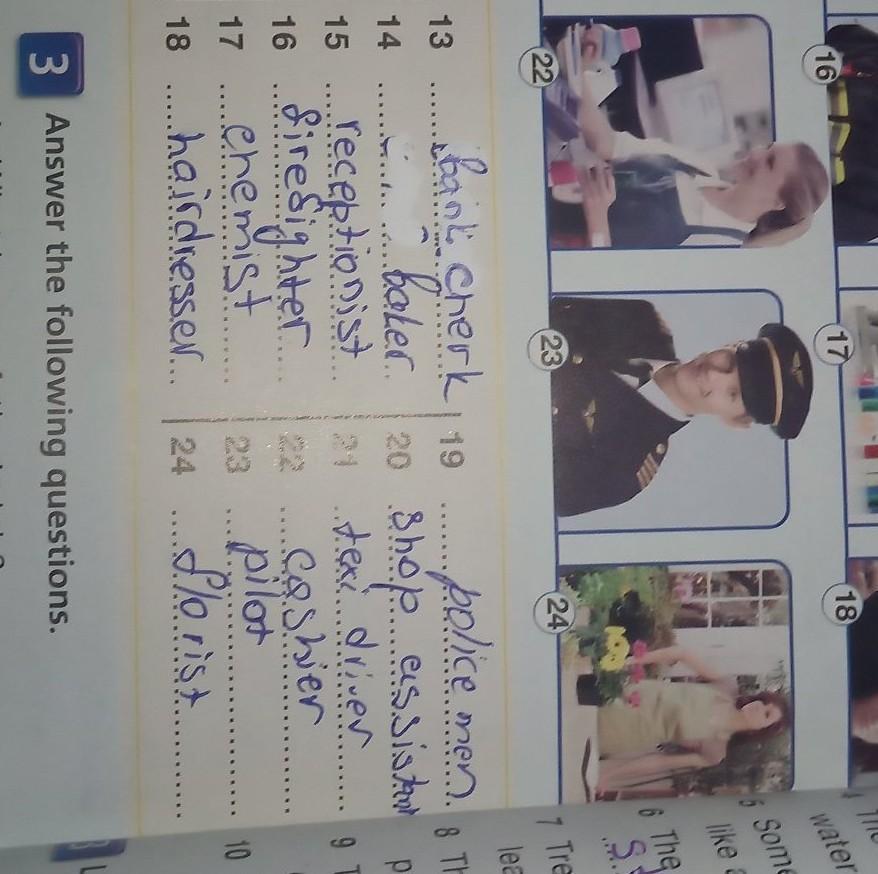 16
17
18
22
23
24
13 bank cherk
14 baker
15 receptionist
16 firefighter
17 chemist
18 hairdresser
19 police men
20 shop assistant
21 texi driver
22 cashier
23 pilot
24 florist
3 Answer the following questions.
5 Some
like
water
6 The
7 Tre
lea
8 Th
9
10